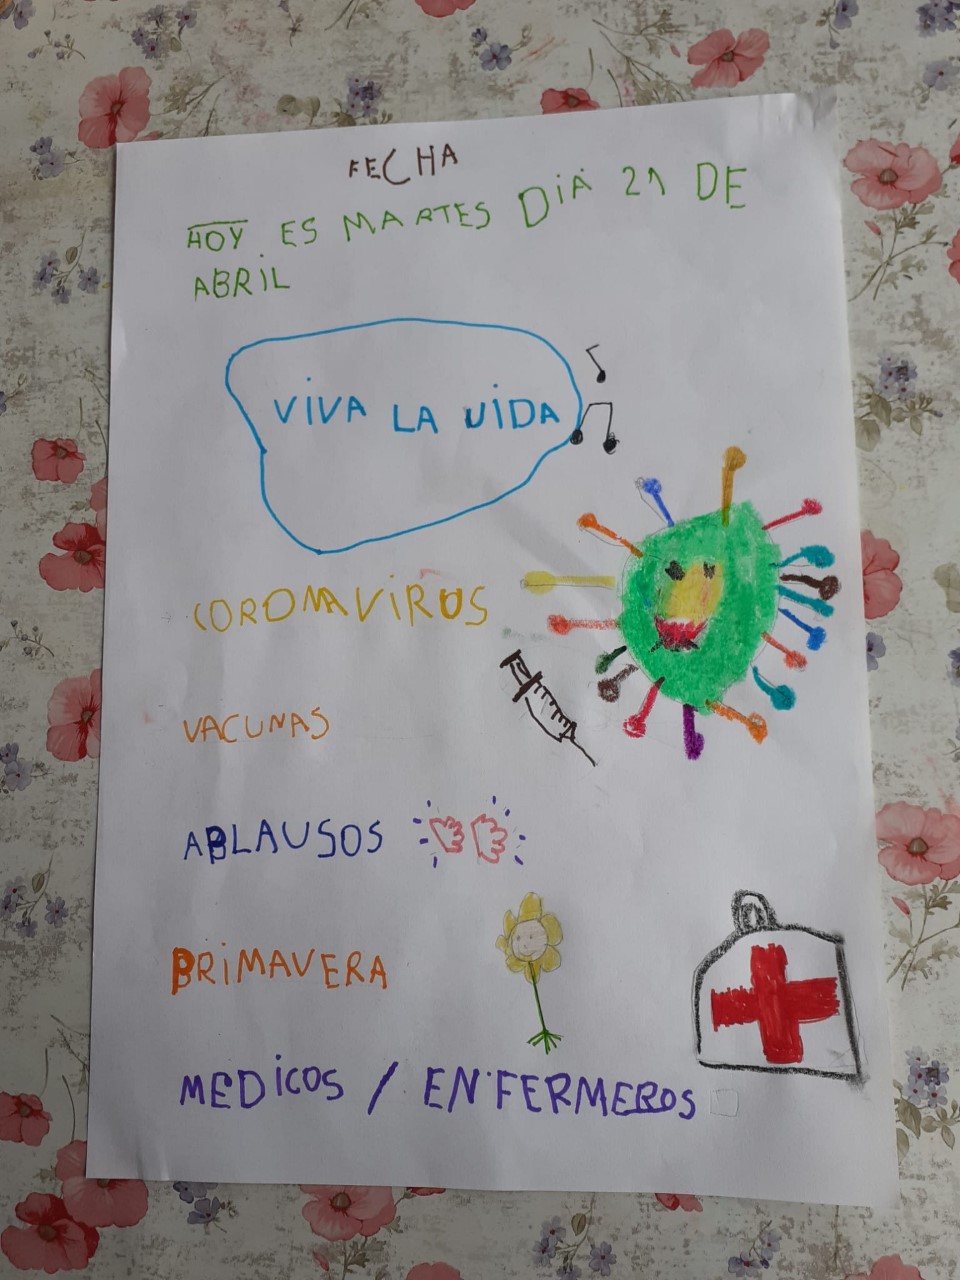 FECHA
HOY ES MARTES DIA 21 DE
ABRIL
VIVA LA VIDA
CORONAVIRUS
VACUNAS
ABLAUSOS
BRIMAVERA
MEDICOS / ENFERMEROS